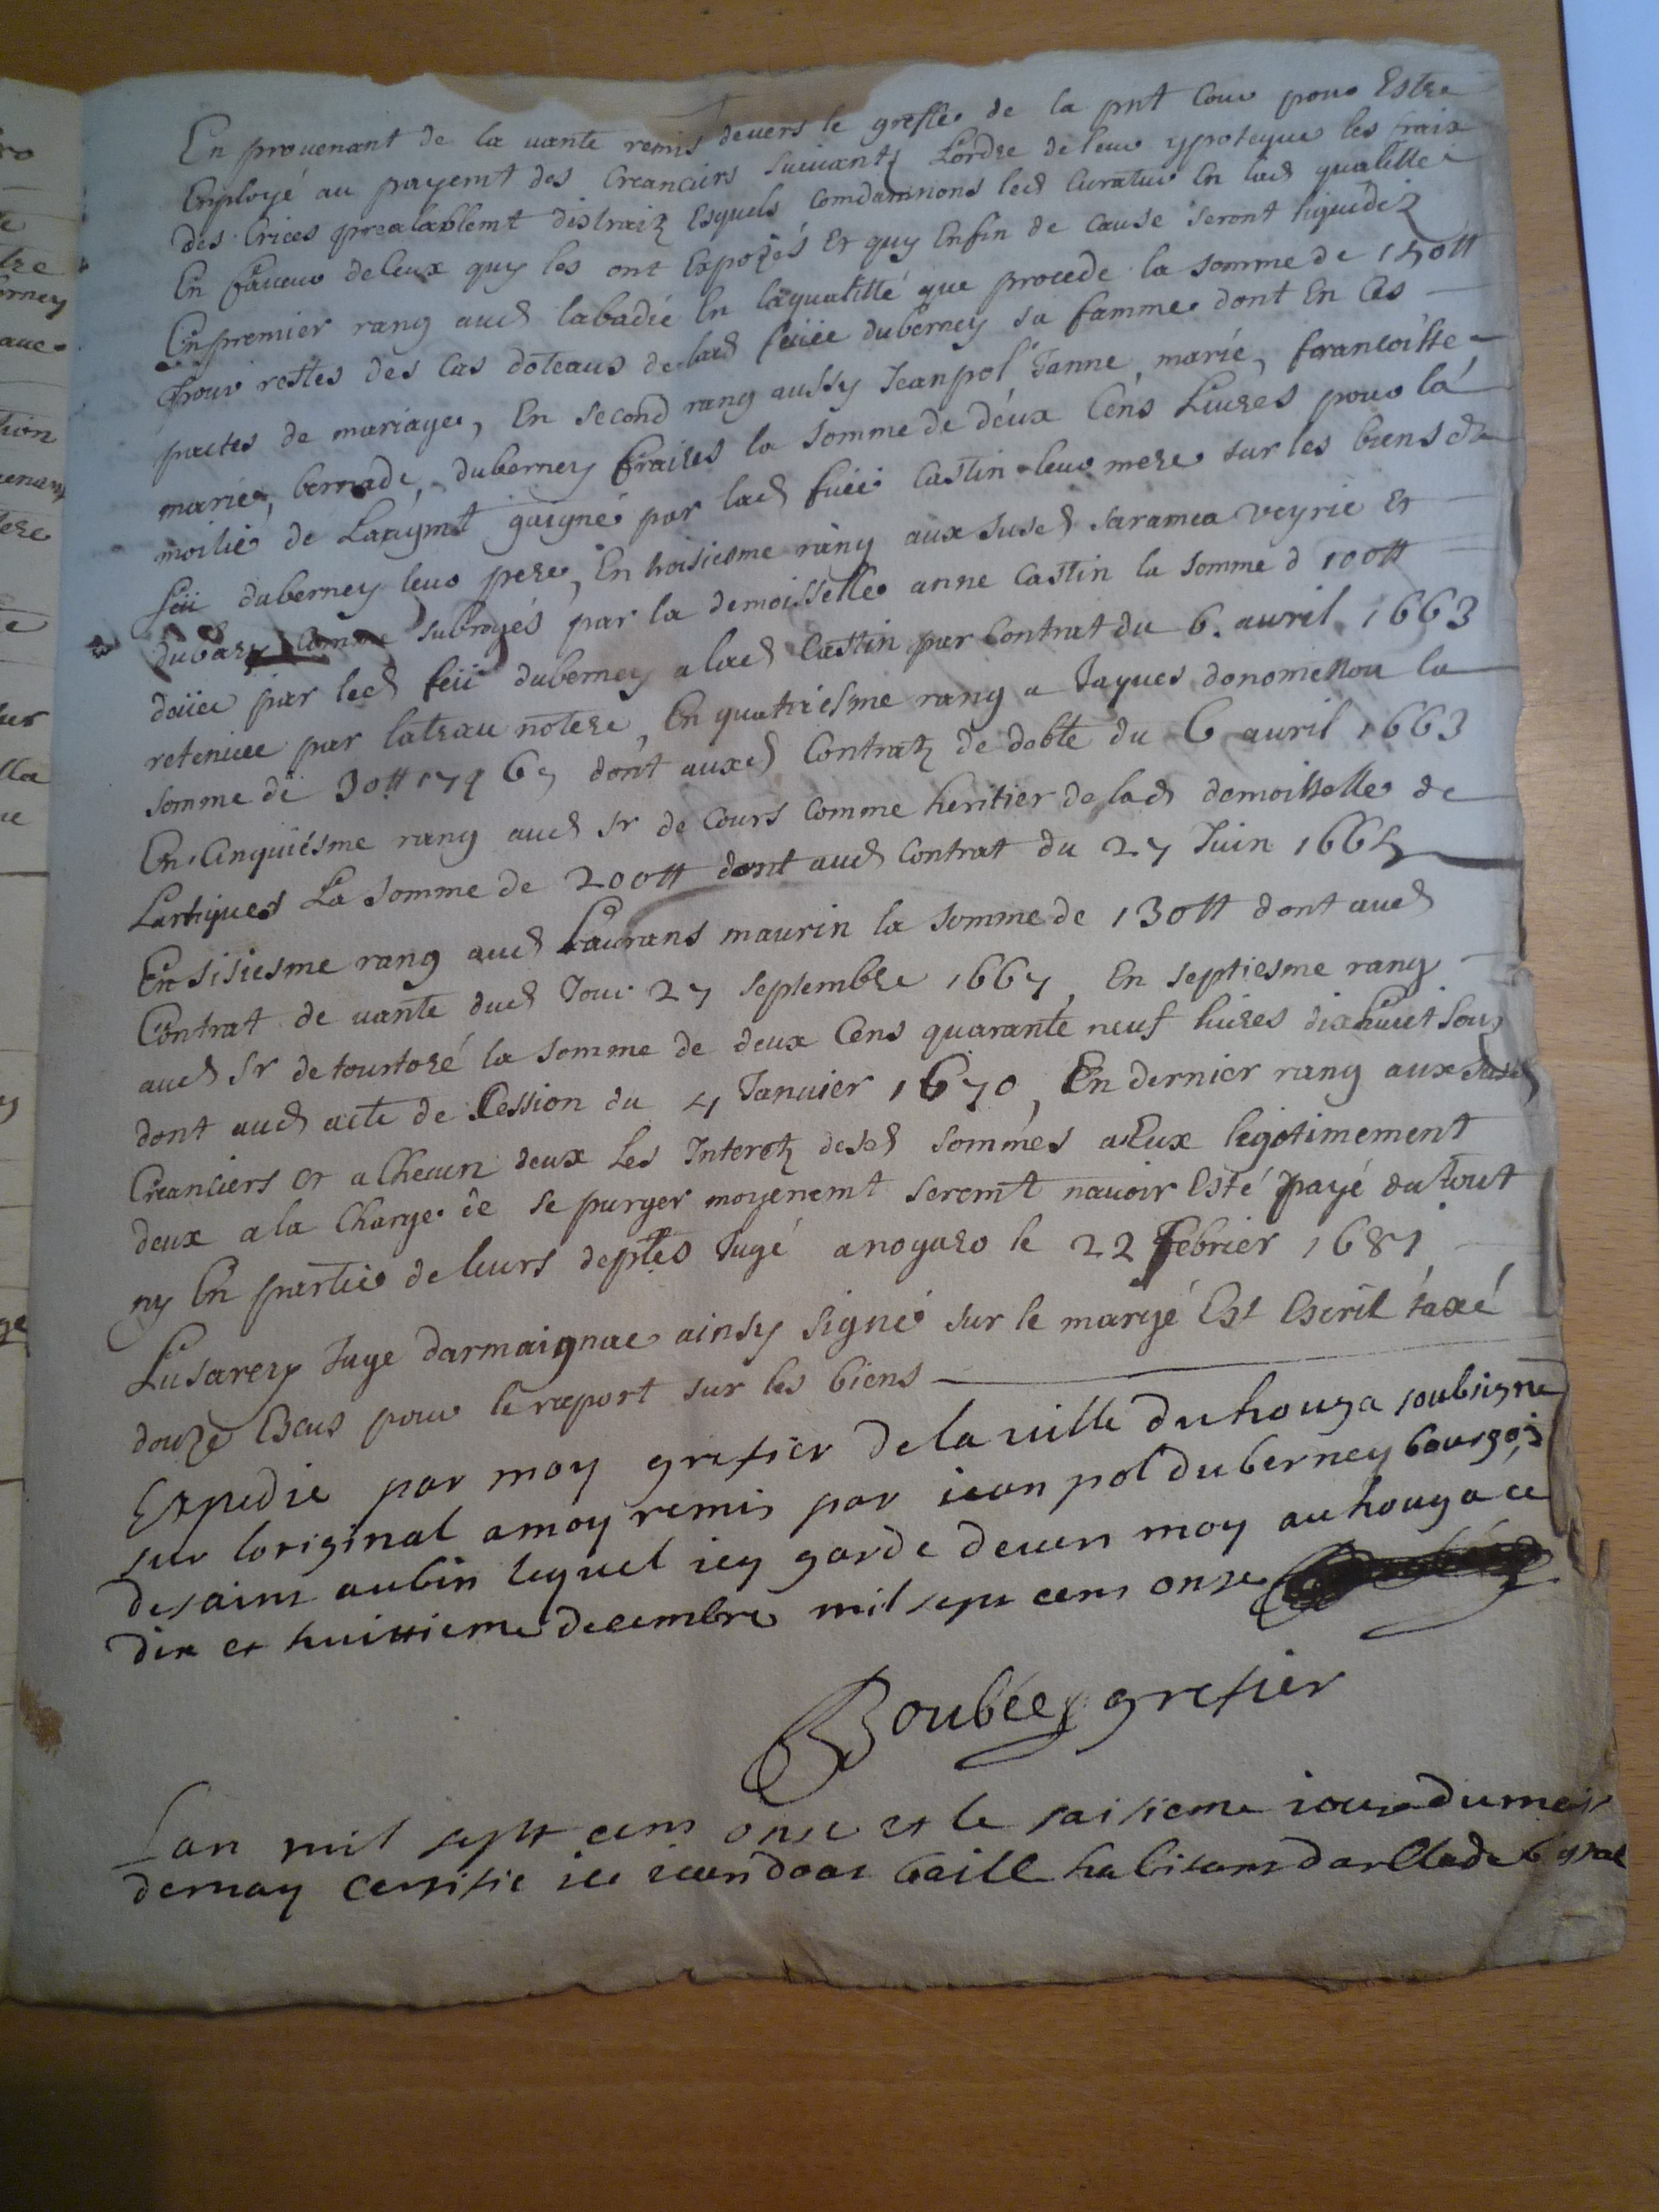 En prouenant de la uante remis deuers le greffe de la pnt Cour pour Estre
Employé au payemt des Creanciers suiuants Lordre de leur ypoteque les fraix
des Criees prealablemt distraitz Esquels Comdamnons led Curatur En lad qualitté
En faueur de Ceux quy les ont Expozés Et quy Enfin de Cause seront liquidéz
En premier rang aud labadie En laqualitté que procede la somme de 150tt
pour restes des Cas doteaus de lad feüe duberney sa famme dont En Ces
pactes de mariage, En second rang aussy Jeanpol Janne, marie, francoisse
marie, bernade, duberney fraires la somme de deux Cens Liures pour la
moitié de Laugmt gaigné par lad fuee Castin leur mere sur les biens de
feü duberney leur pere, En troisiesme rang aux sused saramea veyrie Et
dubarry Comme subrogés par la demoisselle anne Castin la somme d 100tt
deüee par led feü duberney a lad Castin par Contrat du 6. auril 1663
retenuee par latrau notere, En quatriesme rang a Jaques donomenou la
somme de 30tt 17s 6d dont auxd Contratz de debte du 6 auril 1663
En Cinquiesme rang aud sr de Cours Comme heritier de lad demoisselle de
Lartigues La somme de 200tt dont aud Contrat du 27 Juin 1665
En sisiesme rang aud Laurans maurin la somme de 130tt dont aud
Contrat de uante dud Jour 27 septembre 1667, En septiesme rang
aud sr de tourtoré la somme de deux Cens quarante neuf liures dixhuit sous
dont aud acte de Cession du 4 Januier 1670, En dernier rang aux susd
Creanciers Et a Checun deux Les Interetz desd sommes a Eux legitimement
deux a la Charge de se purger moyenemt seremt nauoir Esté payé du tout
ny En partie de leurs deptes Jugé a nogaro le 22 febrier 1681
Lusarey Juge darmaignac ainsy signé sur le marge Est Escrit taxé
douze Escus pour le raport sur les biens
Expedie par moy grefier de la uille du houga soubsigne
sur loriginal amoy remis par iean pol duberney bourgois
de saint aubin lequel iey garde deuers moy au houga ce
dix et huittieme decembre mil sept cens onse
Boubée grefier
Lan mil sept cens onse et le saisieme iour du mois
de may certifie ie iean doat baille habitant darblade